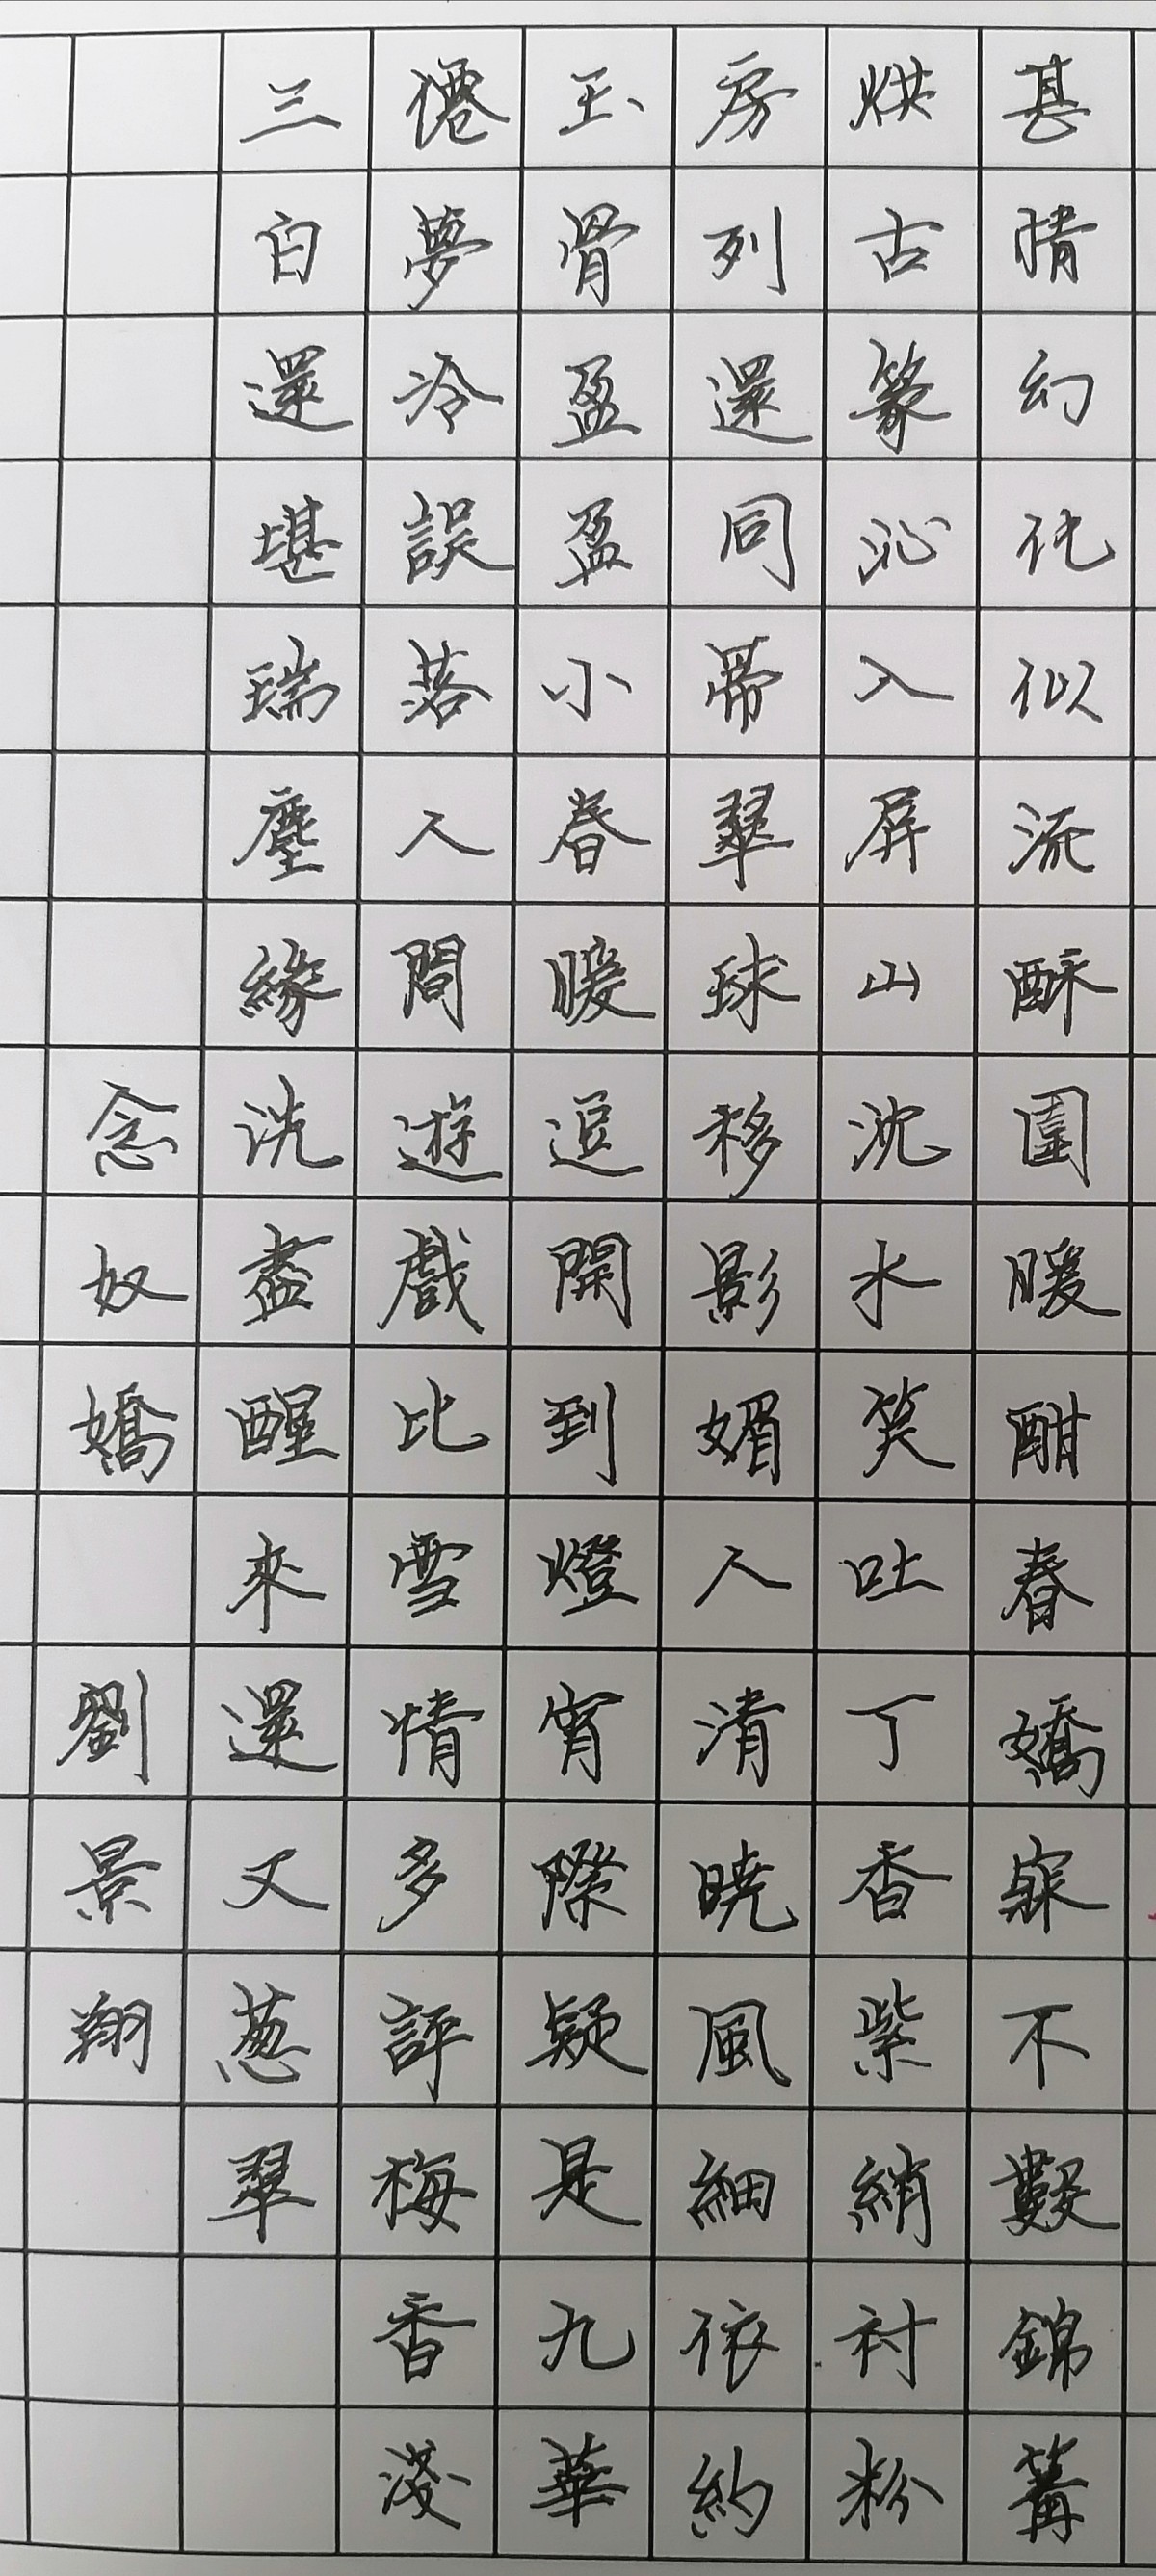 甚情幻化似流酥圍暖酣春嬌寐不數錦篝
烘古篆沁入屏山沈水笑吐丁香紫綃衬粉
房列還同蒂翠球移影媚人清曉風細依約
玉骨盈盈小春暖逗開到燈宵際疑是九華
僊夢冷誤落人間遊戲比雪情多評梅香淺
三白還堪瑞塵緣洗盡醒來還又葱翠
念奴嬌 劉景翔